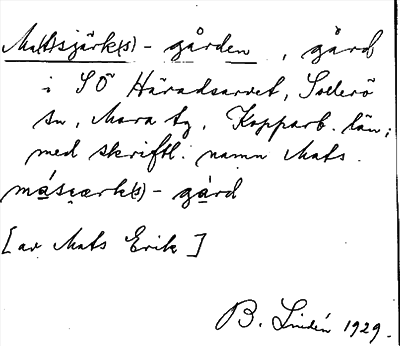 Matsjärk(s)-gården, gård
i SÖ Häradsarvet, Sollerö
sn, Mora tg, Kopparb. län;
med skriftl. namn Mats.
másɪærk(s)-gàrd
[av Mats Erik]
B. Lindén 1929.